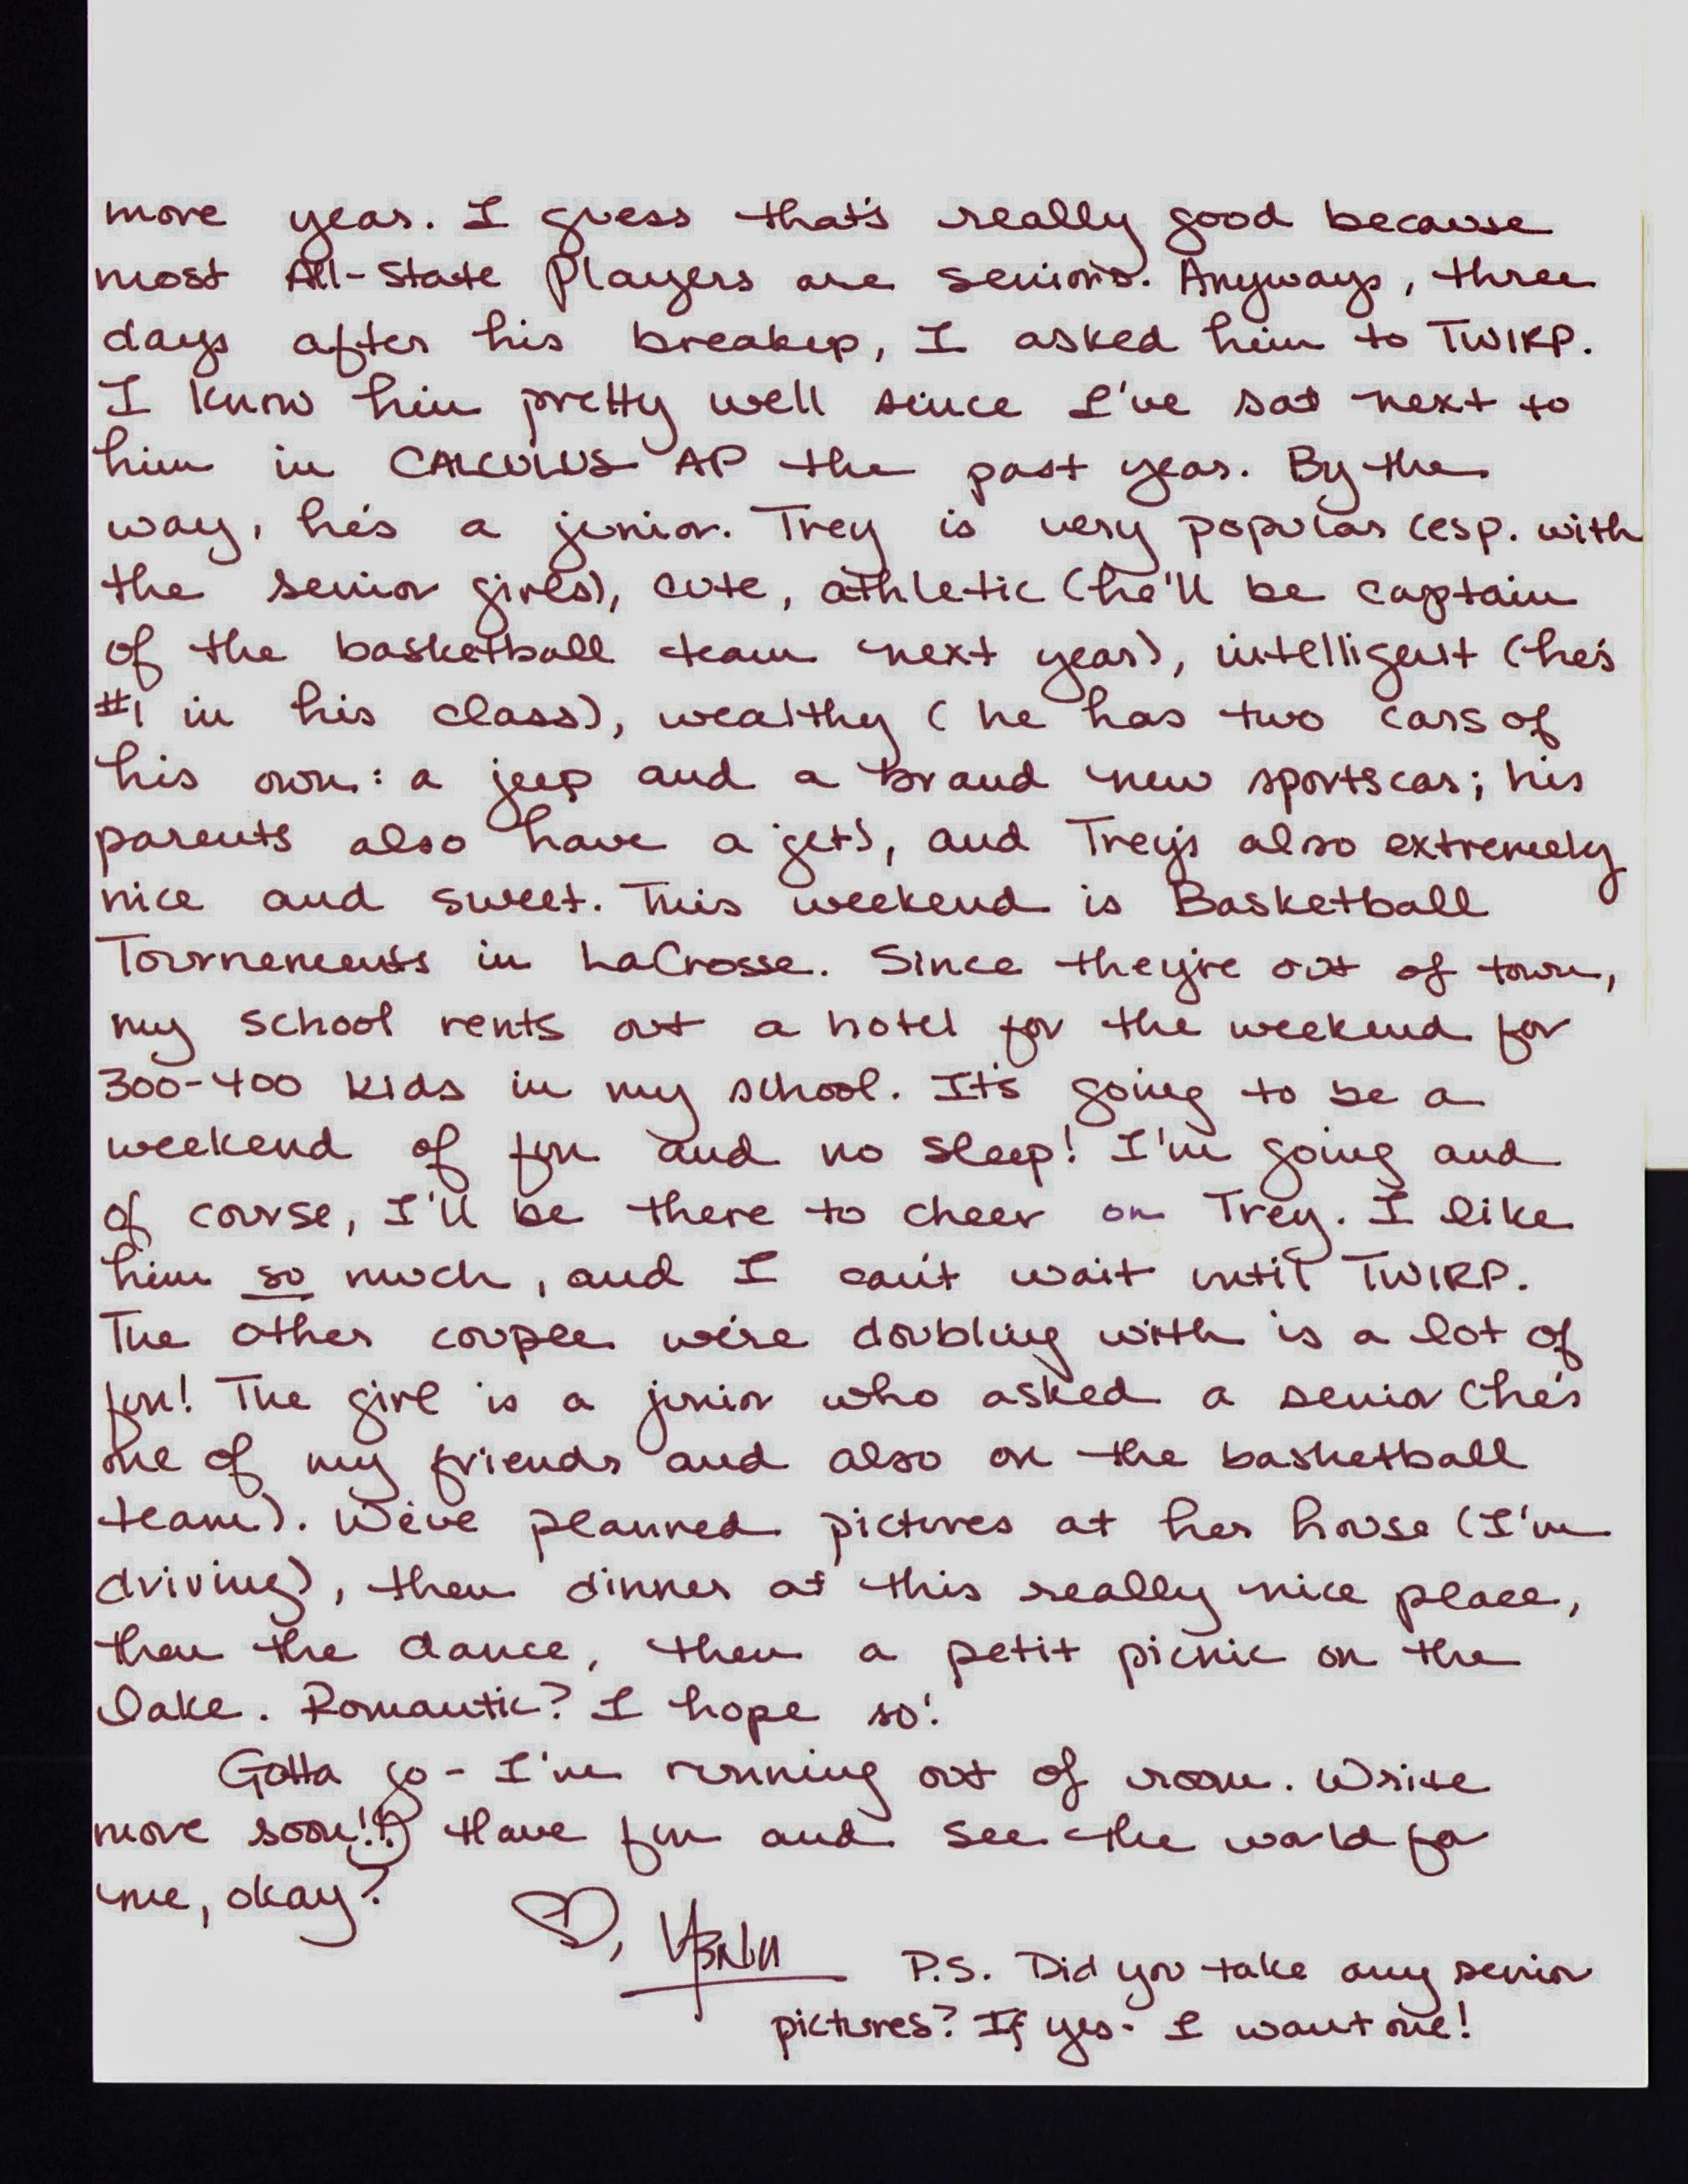 more year. I guess that's really good because
most All-State Players are seniors. Anyways, three
days after his breakup, I asked him to TWIRP.
I know him pretty well since I've sat next to
him in CALCULUS AP the past year. By the
way, he's a junior. Trey is very popular (esp. with
the senior girls), cute, athletic (he'll be captain
of the basketball team next year), intelligent (he's
#1 in his class), wealthy (he has two cars of
his own: a jeep and a brand new sportscar; his
parents also have a jet), and Trey's also extremely
nice and sweet. This weekend is Basketball
Tournements in LaCrosse. Since they're out of town,
my school rents out a hotel for the weekend for
300-400 kids in my school. It's going to be a
weekend of fun and no sleep! I'm going and
of course, I'll be there to cheer on Trey. I like
him so much, and I can't wait until TWIRP.
The other couple we're doubling with is a lot of
fun! The girl is a junior who asked a senior (he's
one of my friends and also on the basketball
team). We've planned pictures at her house (I'm
driving), then dinner at this really nice place,
then the dance, then a petit picnic on the
lake. Romantic? I hope so!
Gotta go - I'm running out of room. Write
more soon!! Have fun and see the world for
me, okay?
P.S. Did you take any senior
pictures? If yes - I want one!